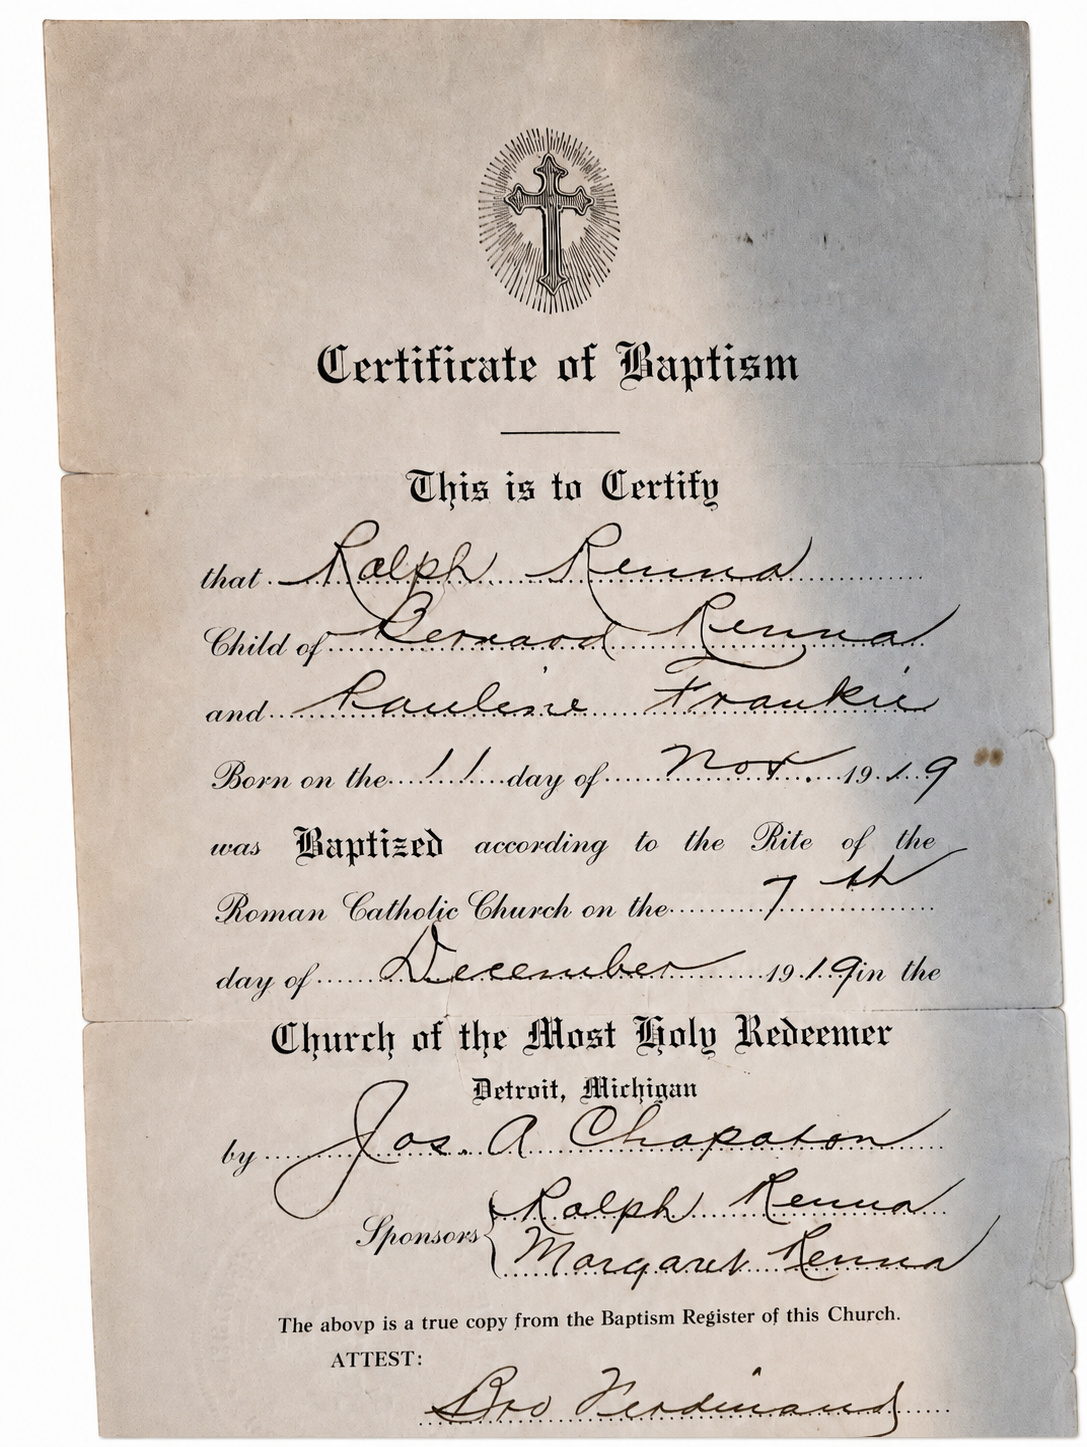 Certificate of Baptism
This is to Certify
that Ralph Renna
Child of Bernard Renna
and Pauline Frankie
Born on the 11 day of Nov. 1919
was Baptized according to the Rite of the
Roman Catholic Church on the 7th
day of December 1919 in the
Church of the Most Holy Redeemer
Detroit, Michigan
by Jos. A Chapoton
Sponsors { Ralph Renna
Margaret Renna
The abovp is a true copy from the Baptism Register of this Church.
ATTEST:
Bro Ferdinand